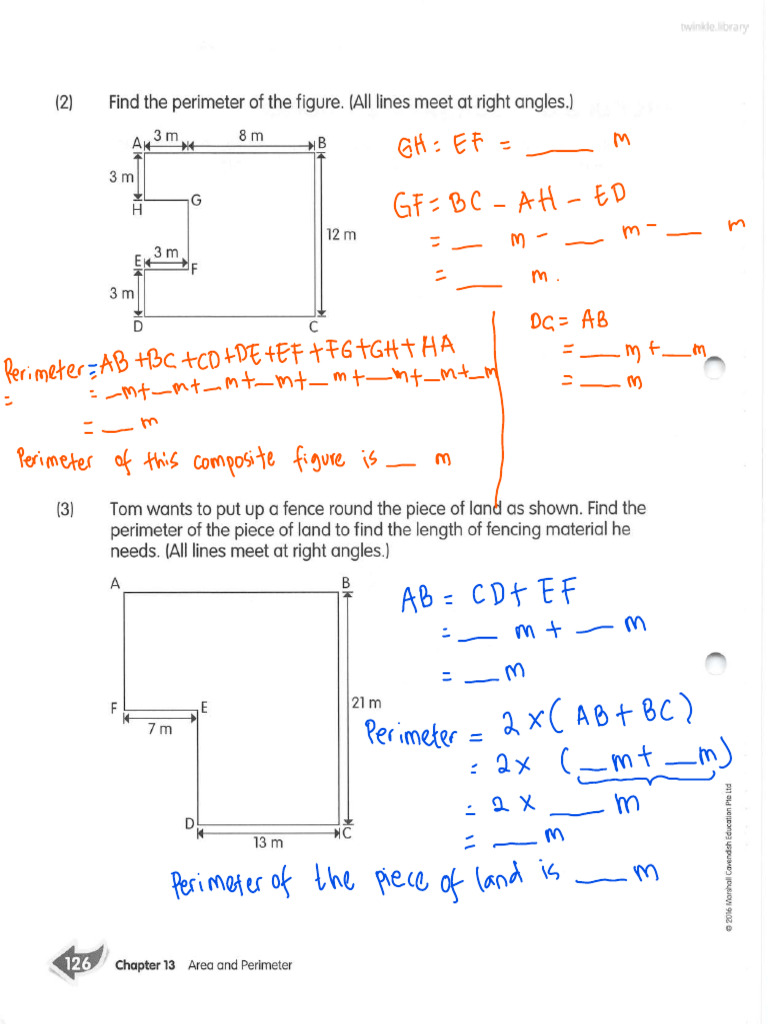 twinkle.library
(2) Find the perimeter of the figure. (All lines meet at right angles.)
A 3 m 8 m B
3 m
H G
12 m
E 3 m F
3 m
D C
GH = EF = ___ m
GF = BC - AH - ED
= ___ m - ___ m - ___ m
= ___ m.
DC = AB
= ___ m + ___ m
= ___ m
Perimeter = AB + BC + CD + DE + EF + FG + GH + HA
= = _m + _m + _m + _m + _m + _m + _m + _m
= __ m
Perimeter of this composite figure is __ m
(3) Tom wants to put up a fence round the piece of land as shown. Find the
perimeter of the piece of land to find the length of fencing material he
needs. (All lines meet at right angles.)
A B
F E 21 m
7 m
D C
13 m
AB = CD + EF
= ___ m + ___ m
= ___ m
Perimeter = 2 x ( AB + BC )
= 2 x ( __ m + __ m )
= 2 x ___ m
= ___ m
Perimeter of the piece of land is ___ m
© 2016 Marshall Cavendish Education Pte Ltd
126 Chapter 13 Area and Perimeter